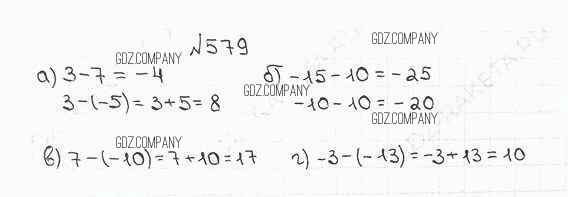 №579
GDZ.COMPANY
GDZ.COMPANY
а) 3-7 = -4
б) -15-10 = -25
GDZ.COMPANY
3-(-5) = 3+5 = 8
-10-10 = -20
GDZ.COMPANY
GDZ.COMPANY
в) 7-(-10) = 7+10 = 17
г) -3-(-13) = -3+13 = 10